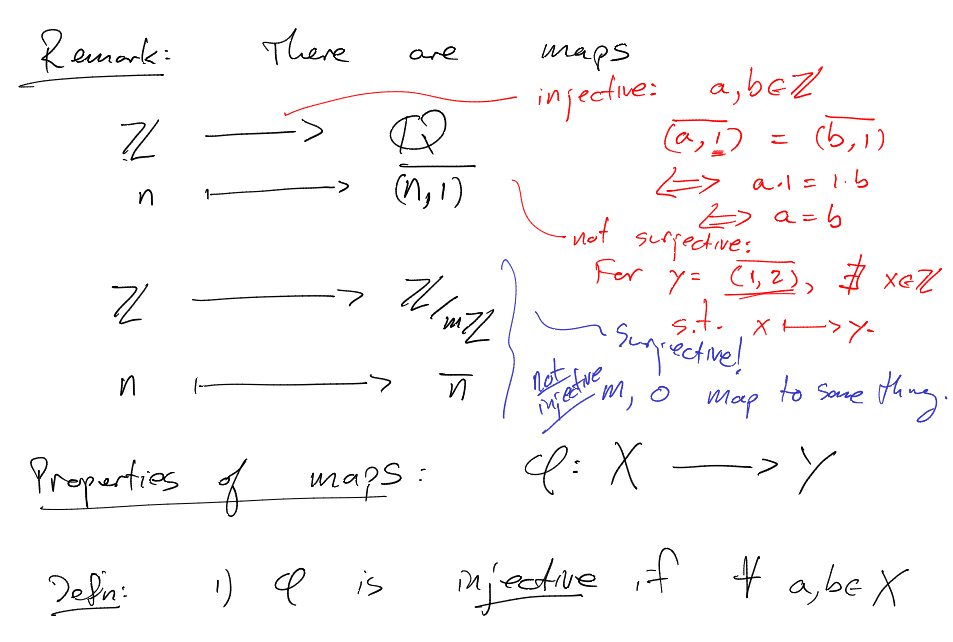 Remark: There are maps
ℤ ⟶ ℚ
n ⟼ \overline{(n,1)}
injective: a,b∈ℤ
\overline{(a,1)} = \overline{(b,1)}
⟺ a·1 = 1·b
⟺ a = b
not surjective:
For y = \overline{(1,2)}, ∄ x∈ℤ
s.t. x ⟼ y.
ℤ ⟶ ℤ/mℤ
n ⟼ \overline{n}
Surjective!
not injective m, 0 map to same thing.
Properties of maps: φ: X ⟶ Y
Defn: 1) φ is injective if ∀ a,b∈X